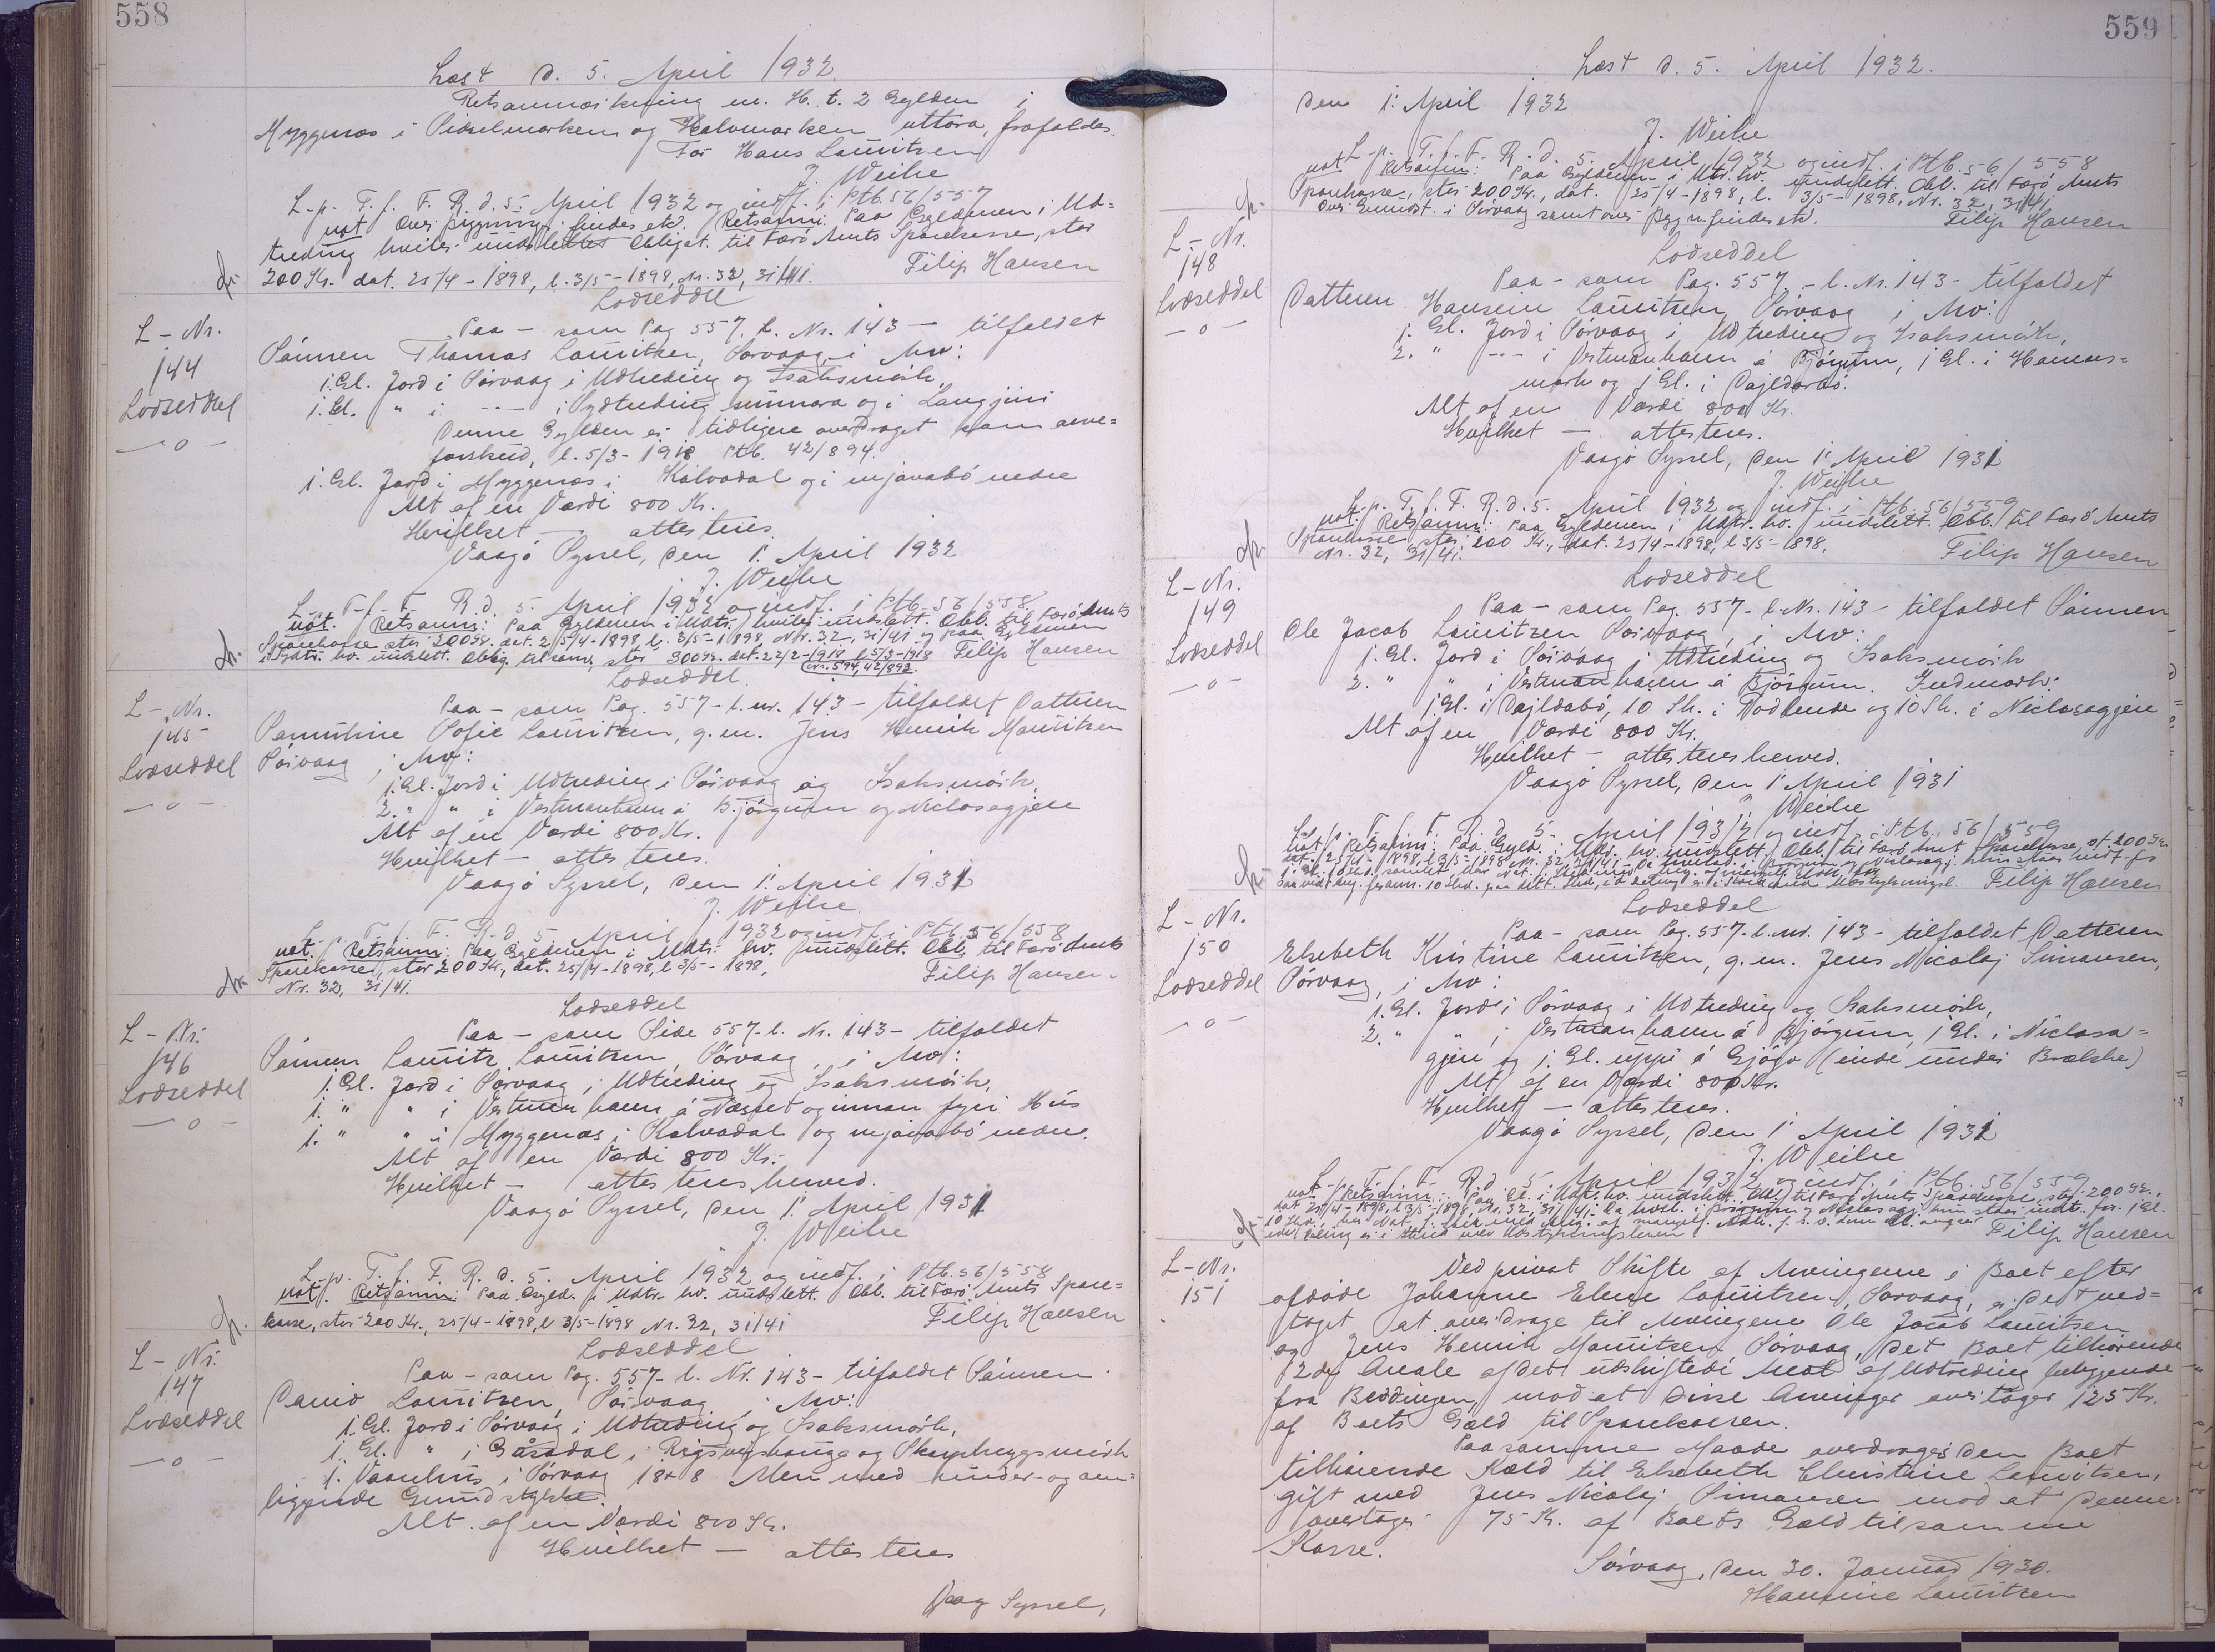 558
Læst d. 5. April 1932.
Retsanmærkning m. H. t. 2 Gylden i
Myggenæs i Pidselmarken og Halvmarken uttara, frafaldes.
For Hans Lauritzen
J. Weihe
L. p. T. f. F. R. d. 5. April 1932 og indf. i Ptb. 56/557
not over Bygning, findes etc. Retsanm: Paa Gyldenen i Ud=
treding hviler uudslettet Obligat. til Færø Amts Sparekasse, stor
200 Kr. dat. 25/4-1898, l. 3/5-1898, Nr. 32, 31/41. Filip Hansen
L-Nr.
144
Lodseddel
—o—
Lodseddel
Paa - som Pag 557, l. Nr. 143 - tilfaldet
Sönnen Thomas Lauritzen, Sörvaag, i Arv:
1. Gl. Jord i Sörvaag i Udtreding og Isaksmörk,
1. Gl. " i --- i Sydtreding sunnara og i Langjini
Denne Gylden er tidligere overdraget som arve=
forskud, l. 5/3-1918 Ptb. 42/894.
1. Gl. Jord i Myggenæs i Kálvadal og i mjávabö nedre
Alt af en Værdi 800 Kr.
Hvilket — attesteres.
Vaagö Syssel, den 1. April 1932
J. Weihe
L. p. T. f. F. R. d. 5. April 1932 og indf. i Ptb. 56/558.
not. Retsanm: Paa Gyldenen i Udtr. hviler uudslett. Obl. til Færö Amts
Sparekasse stor 200 Kr. dat. 25/4-1898, l. 3/5-1898, Nr. 32, 31/41 og paa Gyldenen
i Sydtr. hv. uudslett. Oblig. til samme, stor 300 Kr. dat. 22/2-1918 l. 5/3-1918 Filip Hansen
Nr. 594, 42/893.
L-Nr.
145
Lodseddel
—o—
Lodseddel.
Paa - som Pag. 557 - l. nr. 143 - tilfaldet Datteren
Sofie Lauritzen, g. m. Jens Henrik Mouritzen
Sörvaag i Arv:
1. Gl. Jord i Udtreding i Sörvaag og Isaksmörk,
2. " " i Vestmanhavn á Bjórgum og Niclasagjen
Alt af en Værdi 800 Kr.
Hvilket - attesteres.
Vaagö Syssel, den 1. April 1931
J. Weihe.
L. p. T. f. F. R. d. 5. April 1932 og indf. i Ptb. 56/558
not. Retsanm: Paa Gyldenen i Udtr. hv. uudslett. Obl. til Færö Amts
Sparekasse, stor 200 Kr., dat. 25/4-1898, l. 3/5-1898,
Nr. 32, 31/41. Filip Hansen.
L-Nr.
146
Lodseddel
—o—
Lodseddel
Paa - som Side 557 - l. Nr. 143 - tilfaldet
Sönnen Lauritz Lauritzen, Sörvaag, i Arv:
1. Gl. Jord i Sörvaag i Udtreding og Isaksmörk,
1. " " i Vestmanhavn á Næsset og innan fyri Hús
1. " " i Myggenæs i Kalvadal og mjávabó nedre.
Alt af en Værdi 800 Kr.
Hvilket — attesteres herved.
Vaagö Syssel, den 1. April 1931
J. Weihe
L. p. T. f. F. R. d. 5. April 1932 og indf. i Ptb. 56/558
not. Retsanm: Paa Gyld. i Udtr. hv. uudslett. Obl. til Færö Amts Spare=
kasse, stor 200 Kr., 25/4-1898, l. 3/5-1898 Nr. 32, 31/41 Filip Hansen
L-Nr.
147
Lodseddel
—o—
Lodseddel
Paa - som Pag. 557 - l. Nr. 143 - tilfaldet Sönnen
David Lauritzen, Sörvaag, i Arv:
1. Gl. Jord i Sörvaag i Udtreding og Isaksmörk,
1. Gl. " i Gåsadal i og
1. Vaanhus i Sörvaag 18 x 8 Alen med under- og om=
liggende Grundstykke.
Alt af en Værdi 800 Kr.
Hvilket — attesteres
Vaag Syssel,
559
Læst d. 5. April 1932.
den 1. April 1932
J. Weihe
L. p. T. f. F. R. d. 5. April 1932 og indf. i Ptb. 56/558
not Retsanm: Paa Gyldenen i Udtr. hv. uudslett. Obl. til Færö Amts
Sparekasse, stor 200 Kr., dat. 25/4-1898, l. 3/5-1898, Nr. 32, 31/41
over Grundst. i Sörvaag samt over Bygn. findes etc. Filip Hansen
L-Nr.
148
Lodseddel
—o—
Lodseddel
Paa - som Pag. 557 - l. Nr. 143 - tilfaldet
Datteren Lauritzen, Sörvaag i Arv:
1. Gl. Jord i Sörvaag i Udtreding og Isaksmörk,
2. " --- i Vestmanhavn á Bjórgum, 1 Gl. i
mörk og 1 Gl. i
Alt af en Værdi 800 Kr.
Hvilket — attesteres.
Vaagö Syssel, den 1. April 1931
J. Weihe
L. p. T. f. F. R. d. 5. April 1932 og indf. i Ptb. 56/559
not. Retsanm: Paa Gyldenen i Udtr. hv. uudslett. Obl. til Færö Amts
Sparekasse stor 200 Kr., dat. 25/4-1898, l. 3/5-1898,
Nr. 32, 31/41. Filip Hansen
L-Nr.
149
Lodseddel
—o—
Lodseddel
Paa - som Pag. 557 - l. Nr. 143 - tilfaldet Sönnen
Ole Jacob Lauritzen Sörvaag, i Arv:
1. Gl. Jord i Sörvaag i Udtreding og Isaksmörk
2. " " i Vestmanhavn á Bjórgum. Indmark:
1 Gl. i 10 Sk. i og 10 Sk. i Niclasagjen
Alt af en Værdi 800 Kr.
Hvilket - attesteres herved.
Vaagö Syssel, den 1. April 1931
J. Weihe
L. p. T. f. F. R. d. 5. April 1932 og indf. i Ptb. 56/559
not. Retsanm: Paa Gyld. i Udtr. hv. uudslett. Obl. til Færö Amt Sparekasse, st. 200 Kr.
dat. 25/4-1898, l. 3/5-1898 Nr. 32, 31/41
Filip Hansen
L-Nr.
150
Lodseddel
—o—
Lodseddel
Paa - som Pag. 557 - l. nr. 143 - tilfaldet Datteren
Elsebeth Kristine Lauritzen, g. m. Jens Nicolaj Simonsen,
Sörvaag, i Arv:
1. Gl. Jord i Sörvaag i Udtreding og Isaksmörk,
2. " " i Vestmanhavn á Bjórgum, 1 Gl. i Niclasa=
gjen og 1. Gl. uppi á Gjógv (inde under Brække)
Alt af en Værdi 800 Kr.
Hvilket — attesteres.
Vaagö Syssel, den 1. April 1931
J. Weihe
L. p. T. f. F. R. d. 5. April 1932 og indf. i Ptb. 56/559
not Retsanm: Paa Gl. i Udtr. hv. uudslett. Obl. til Færö Amts Sparekasse, stor 200 Kr.,
dat 25/4-1898, l. 3/5-1898, Nr. 32, 31/41.
Filip Hansen
L-Nr.
151
Ved privat Skifte af Arvingerne i Boet efter
afdöde Johanne Elene Lauritzen, Sörvaag, er det ved=
taget at overdrage til Arvingene Ole Jacob Lauritzen
og Jens Henrik Mouritzen, Sörvaag, det Boet tilhörende
12de Areale af det udskiftede Areal af Udtreding
fra Beddingen, mod at disse Arvinger overtager 125 Kr.
af Boets Gæld til Sparekassen.
Paa samme Maade overdrages den Boet
tilhörende Kæld til Elsebeth Christine Lauritzen,
gift med Jens Nicolaj Simonsen mod at denne
overtager 75 Kr. af Boets Gæld til samme
Kasse.
Sörvaag, den 30. Januar 1930.
Lauritzen